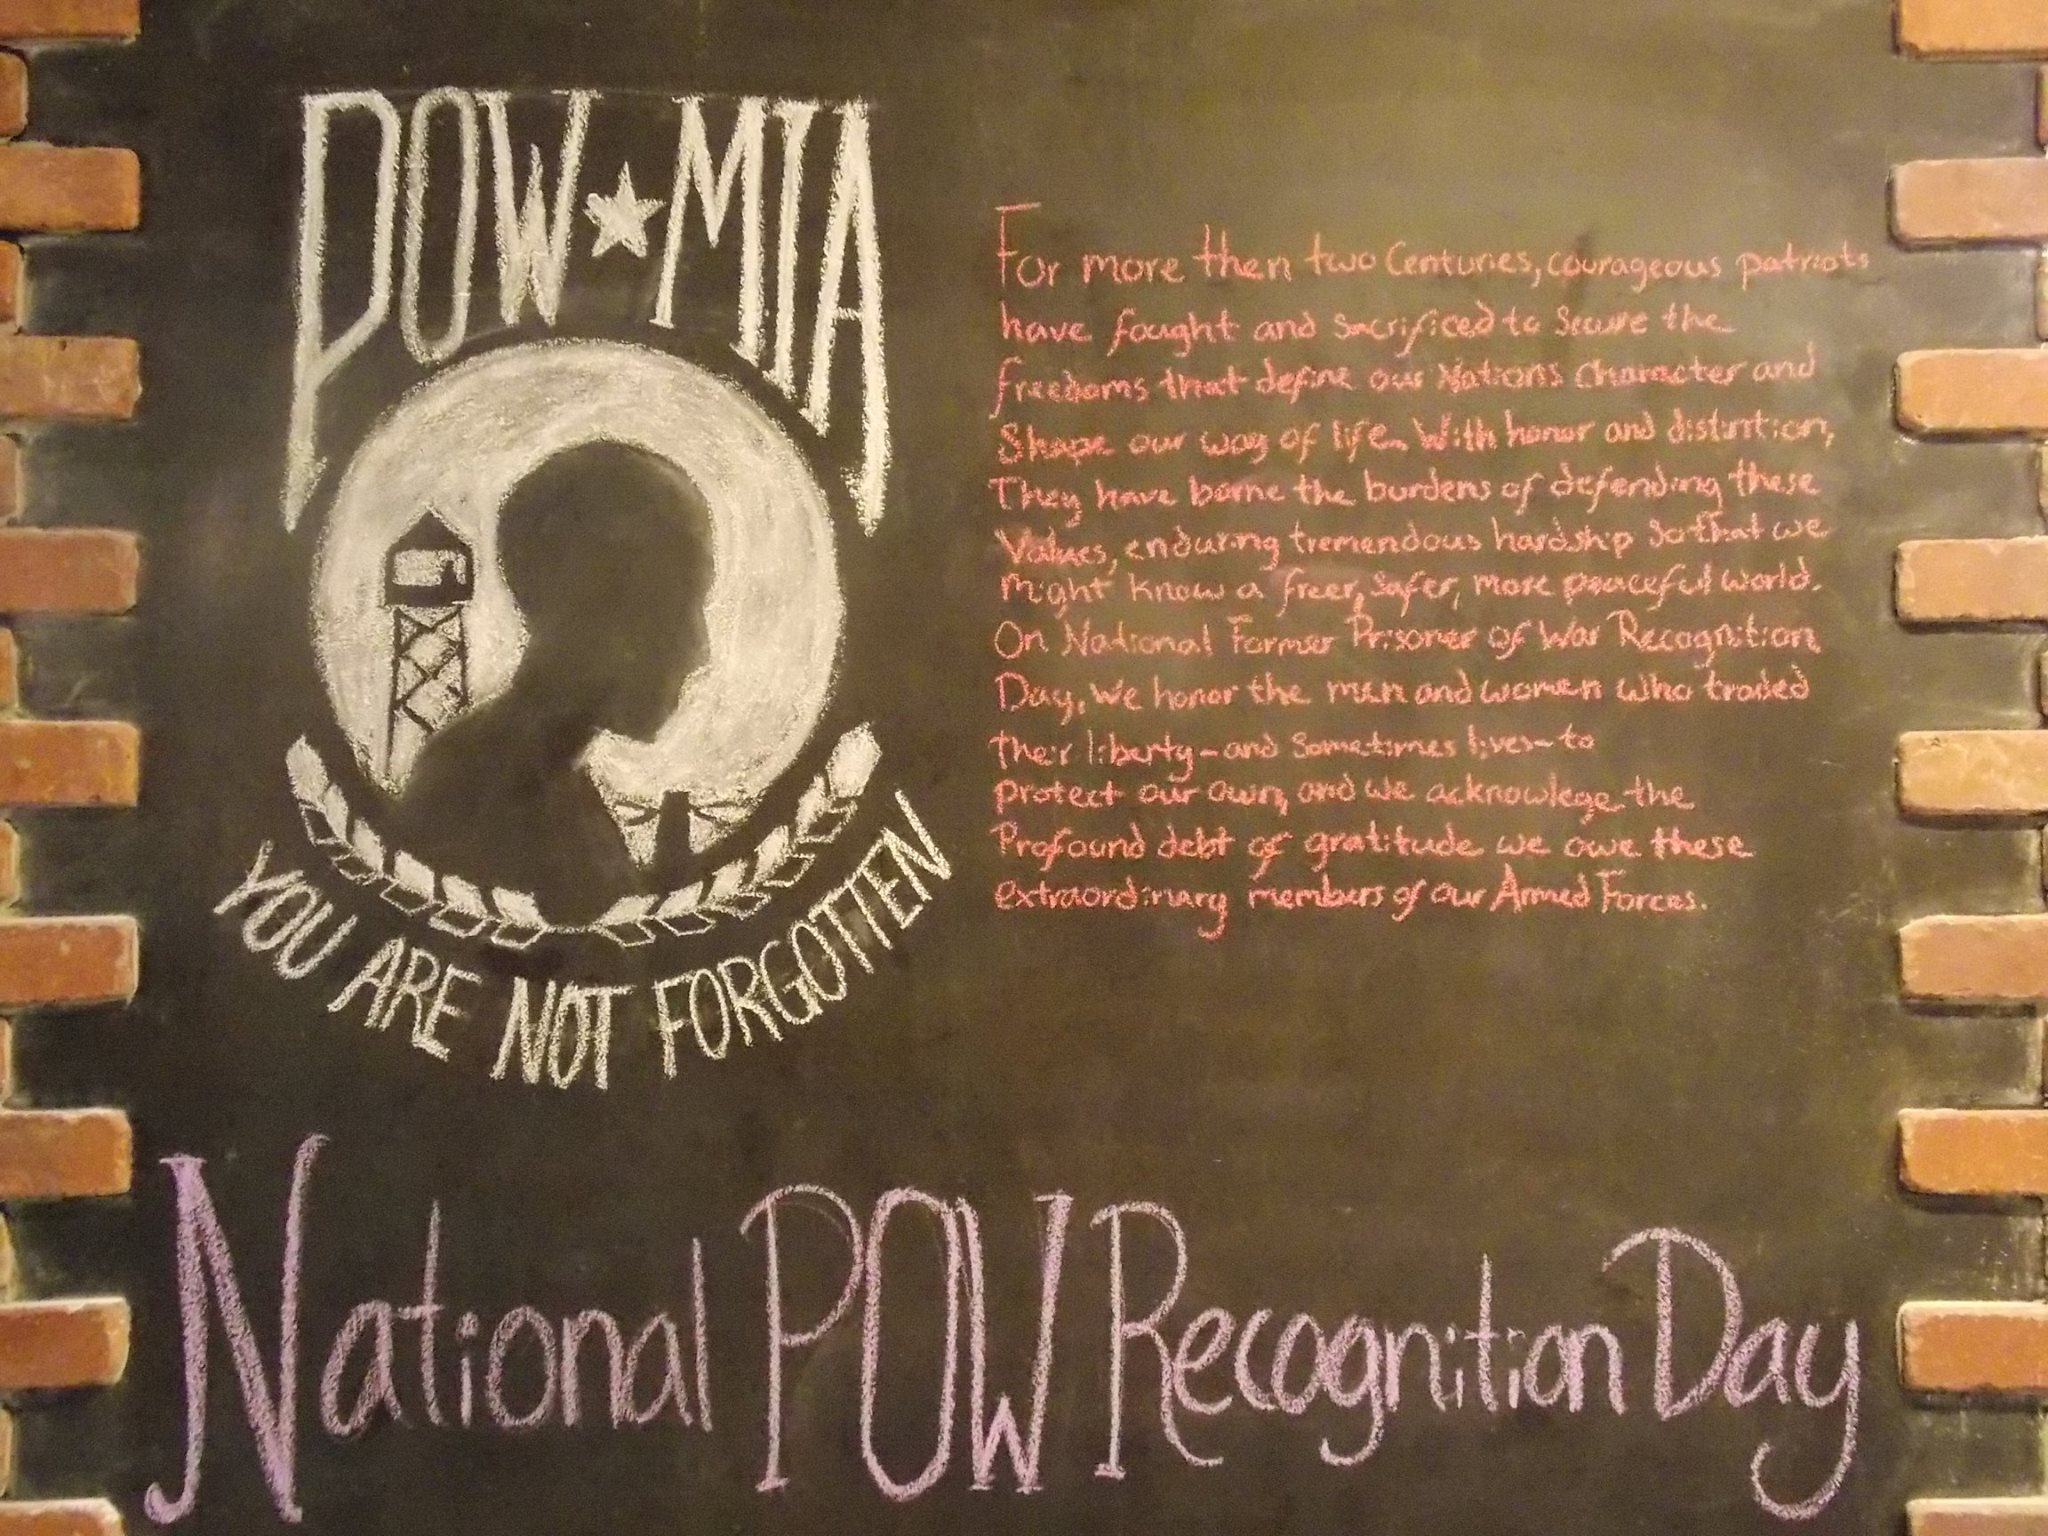 POW★MIA
YOU ARE NOT FORGOTTEN
For more then two Centuries, courageous patriots
have fought and sacrificed to secure the
freedoms that define our Nations Character and
Shape our way of life. With honor and distintion,
They have borne the burdens of defending these
Values, enduring tremendous hardship so that we
might know a freer, safer, more peaceful world.
On National Former Prisoner of War Recognition
Day, we honor the men and women who traded
their liberty-and sometimes lives-to
protect our own, and we acknowlege the
Profound debt of gratitude we owe these
extraordinary members of our Armed Forces.
National POW Recognition Day